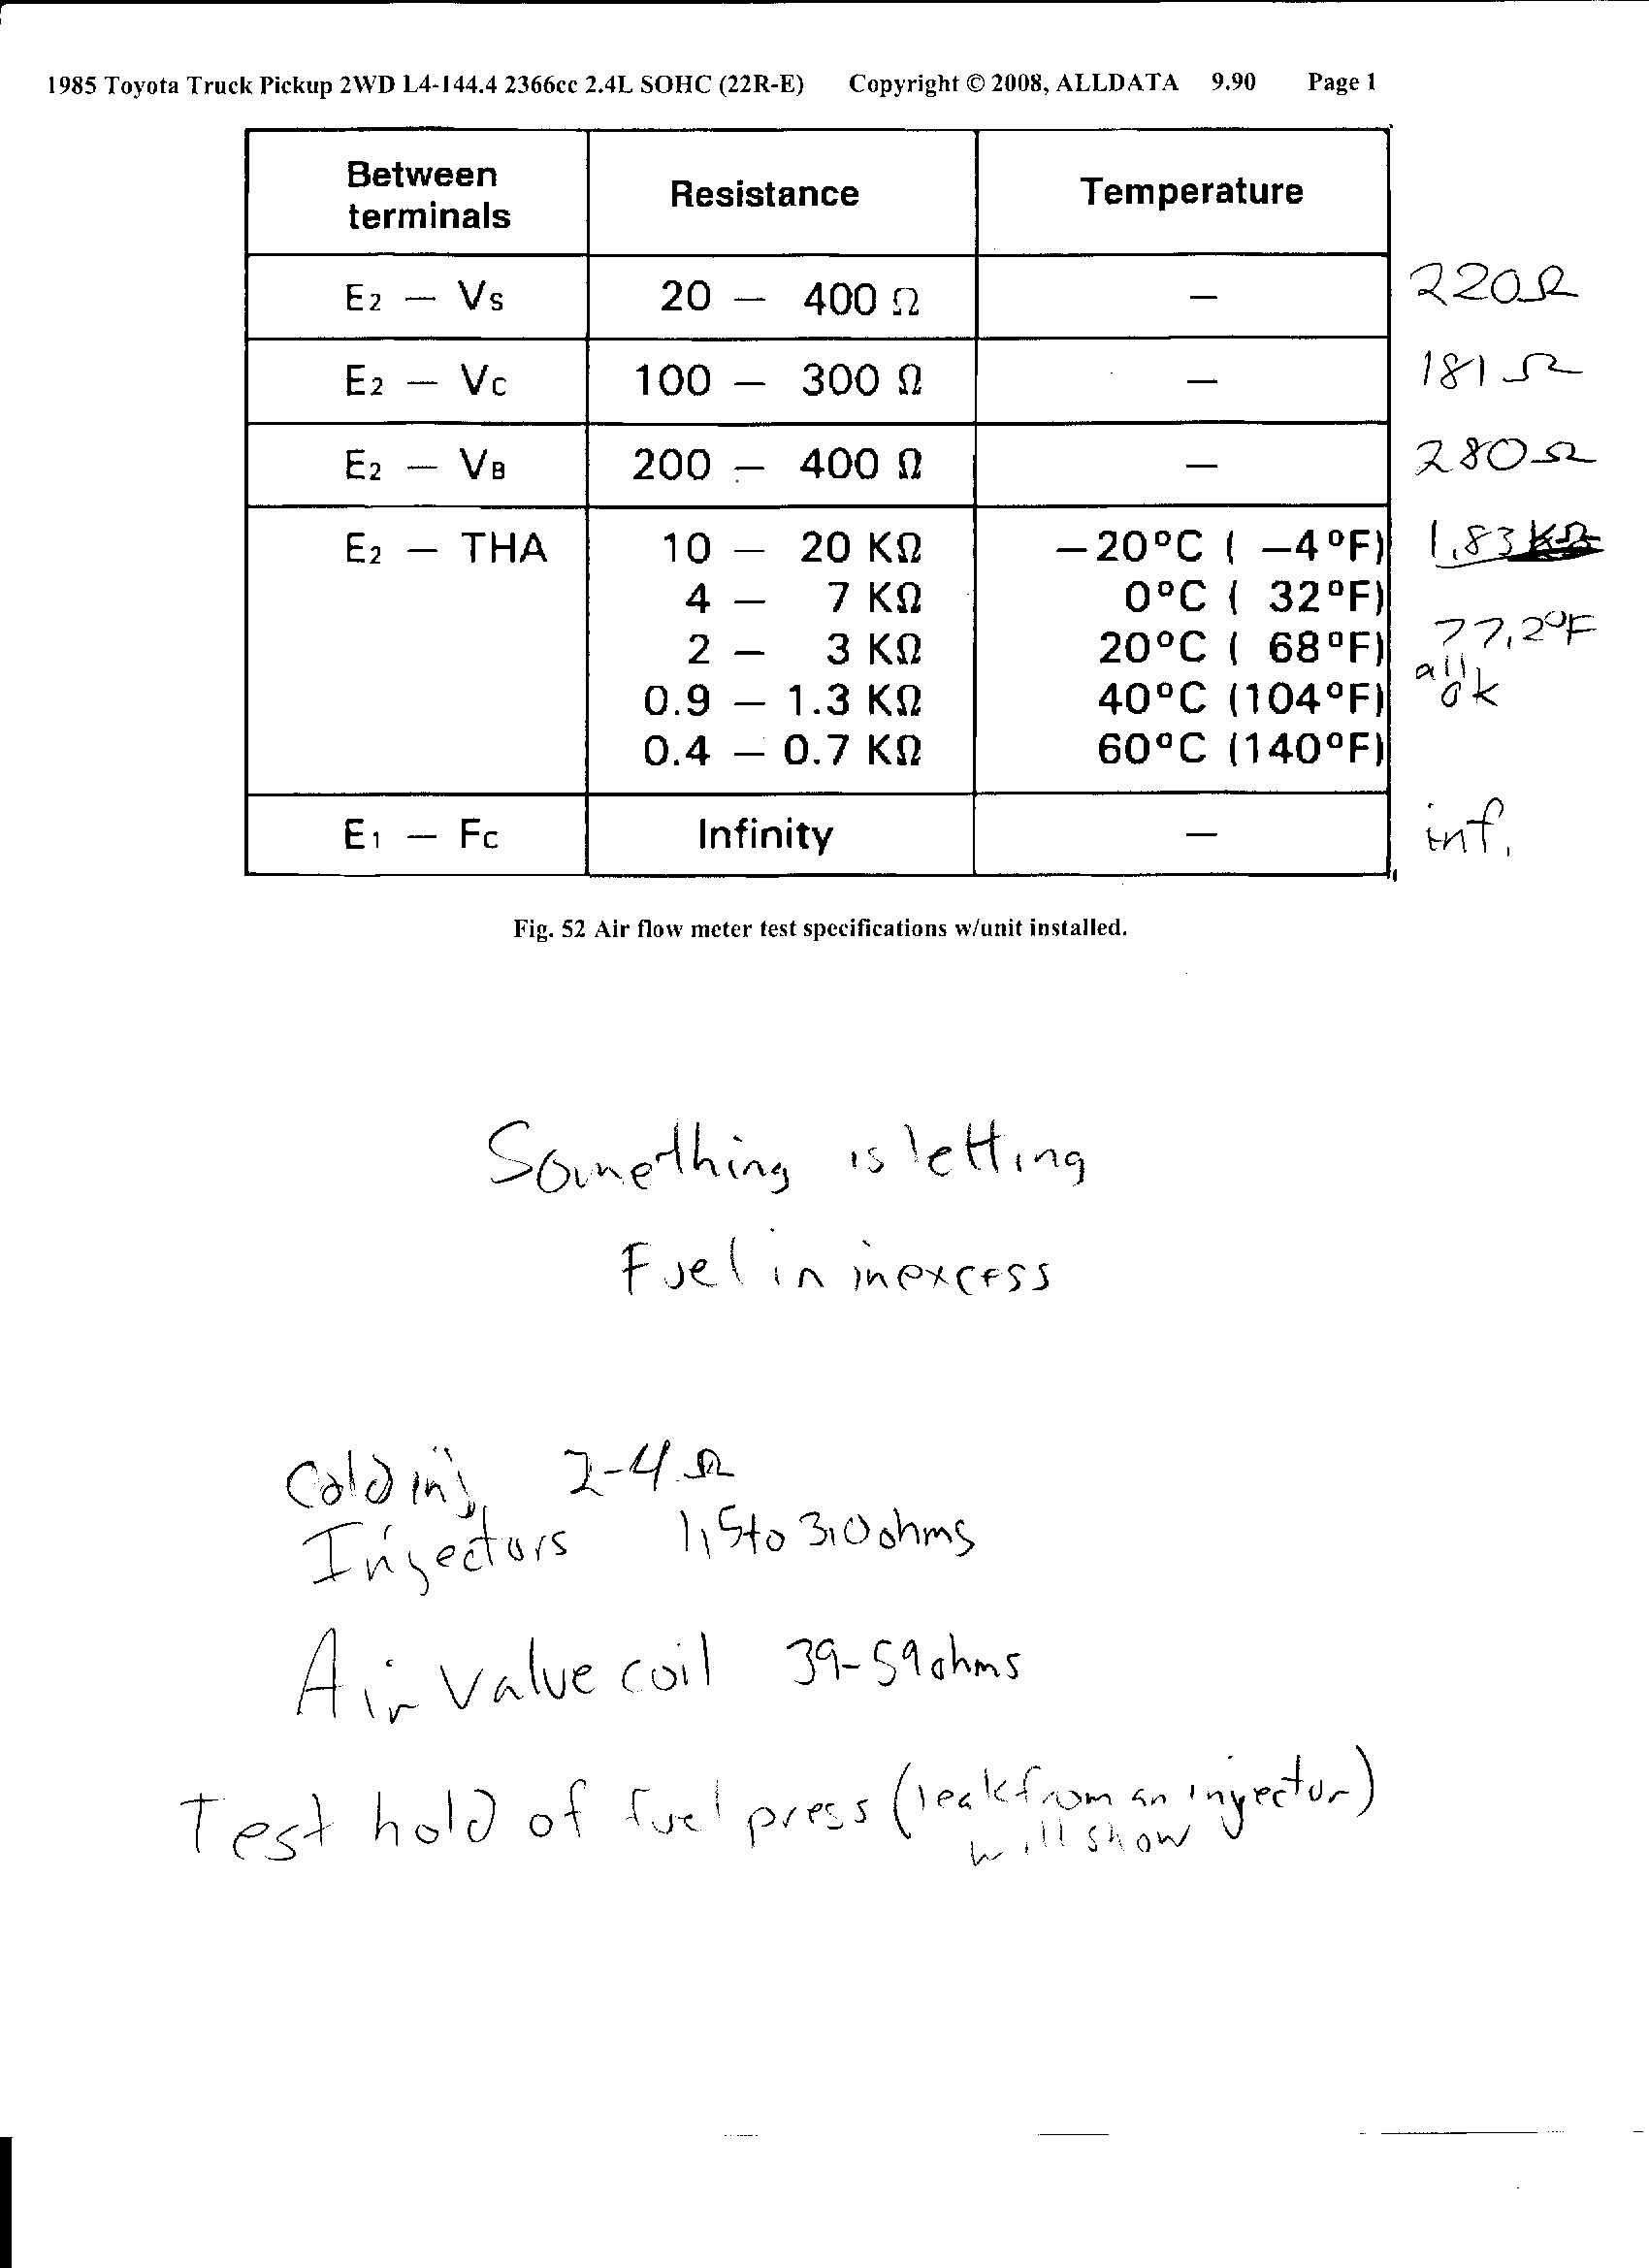 1985 Toyota Truck Pickup 2WD L4-144.4 2366cc 2.4L SOHC (22R-E) Copyright © 2008, ALLDATA 9.90 Page 1
Between terminals Resistance Temperature
E2 — Vs 20 — 400 Ω — 220Ω
E2 — Vc 100 — 300 Ω — 181 Ω
E2 — VB 200 — 400 Ω — 280Ω
E2 — THA 10 — 20 KΩ —20°C ( —4°F) 1.83 KΩ
4 — 7 KΩ 0°C ( 32°F)
2 — 3 KΩ 20°C ( 68°F) 77.2°F
0.9 — 1.3 KΩ 40°C (104°F) all ok
0.4 — 0.7 KΩ 60°C (140°F)
E1 — Fc Infinity — inf.
Fig. 52 Air flow meter test specifications w/unit installed.
Something is letting
Fuel in in excess
Cold inj. 2-4 Ω
Injectors 1.5 to 3.0 ohms
Air valve coil 39-59 ohms
Test hold of fuel press (leak from an injector)
will show